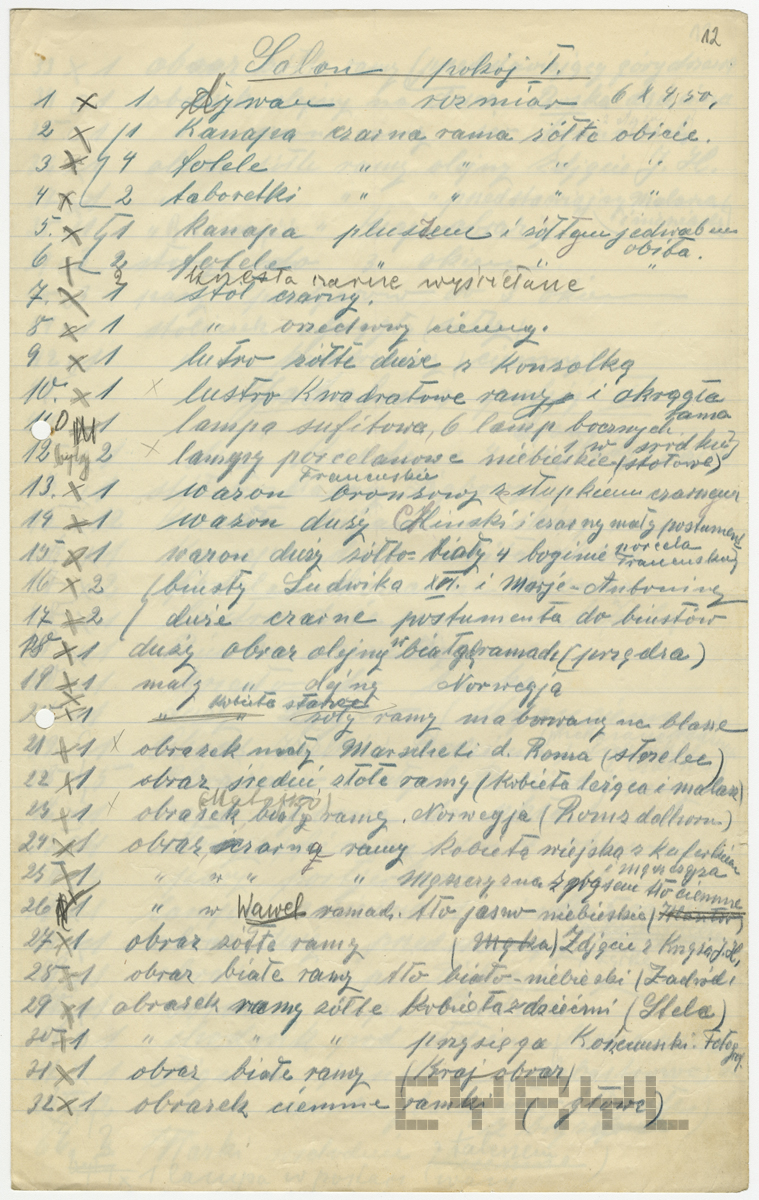 12
Salon pokój I.
1 x 1 Dywan rozmiar 6 X 4,50,
2 x 1 Kanapa czarna rama żółte obicie.
3 x 4 fotele " " "
4 x 2 taboretki " " " "
5. x 1 Kanapa pluszem i żółtym jedwabiem
obita.
6 x 2 fotele " "
2 krzesła czarne wyściełane
7. x 1 stół czarny.
8 x 1 " orzechowy ciemny.
9 x 1 lustro żółte duże z Konsolką
10. x 1 x lustro Kwadratowe ramy i okrągła
rama
11. 0 1 lampa sufitowa, 6 lamp bocznych
1 w środku)
12 były 2 x lampy porcelanowe niebieskie (stołowe)
Francuskie
13. x 1 wazon bronzowy z słupkiem czarnym
14 x 1 wazon duży Chiński i czarny mały postument
15 x 1 wazon duży żółto-biały 4 boginie porcela
Francuska)
16 x 2 (biusty Ludwika XVI. i Marje-Antoniny
17 x 2 ( duże czarne postumenta do biustów
18 x 1 duży obraz olejny w białych ramach (przędza)
19 x 1 mały " olejny Norwegja
Kobieta starsza
20 x 1 " " żóły ramy malowany na blasze
21 x 1 x obrazek mały d. Roma (strzelec)
22 x 1 obraz średni złote ramy (Kobieta leżąca i malarz)
23 x 1 x obrazek biały ramy. Norwegja (Romsdalhorn)
24 x 1 obraz czarną ramy Kobieta wiejska z
25 x 1 " " " " Mężczyzna z tło ciemne
mężczyzna
26 1 " w Wawel ramach. tło jasno niebieskie
27 x 1 obraz żółte ramy (Męka) Zdjęcie z Krzyża J. H.
28 x 1 obraz białe ramy tło biało-niebieski
29 x 1 obrazek ramy żółte Kobieta z dziećmi (Stela)
30 x 1 " " " przysięga Kościuszki. Fotogr.
31 x 1 obraz białe ramy (Krajobraz)
32 x 1 obrazek ciemne ramki ( głowa)
CYRYL